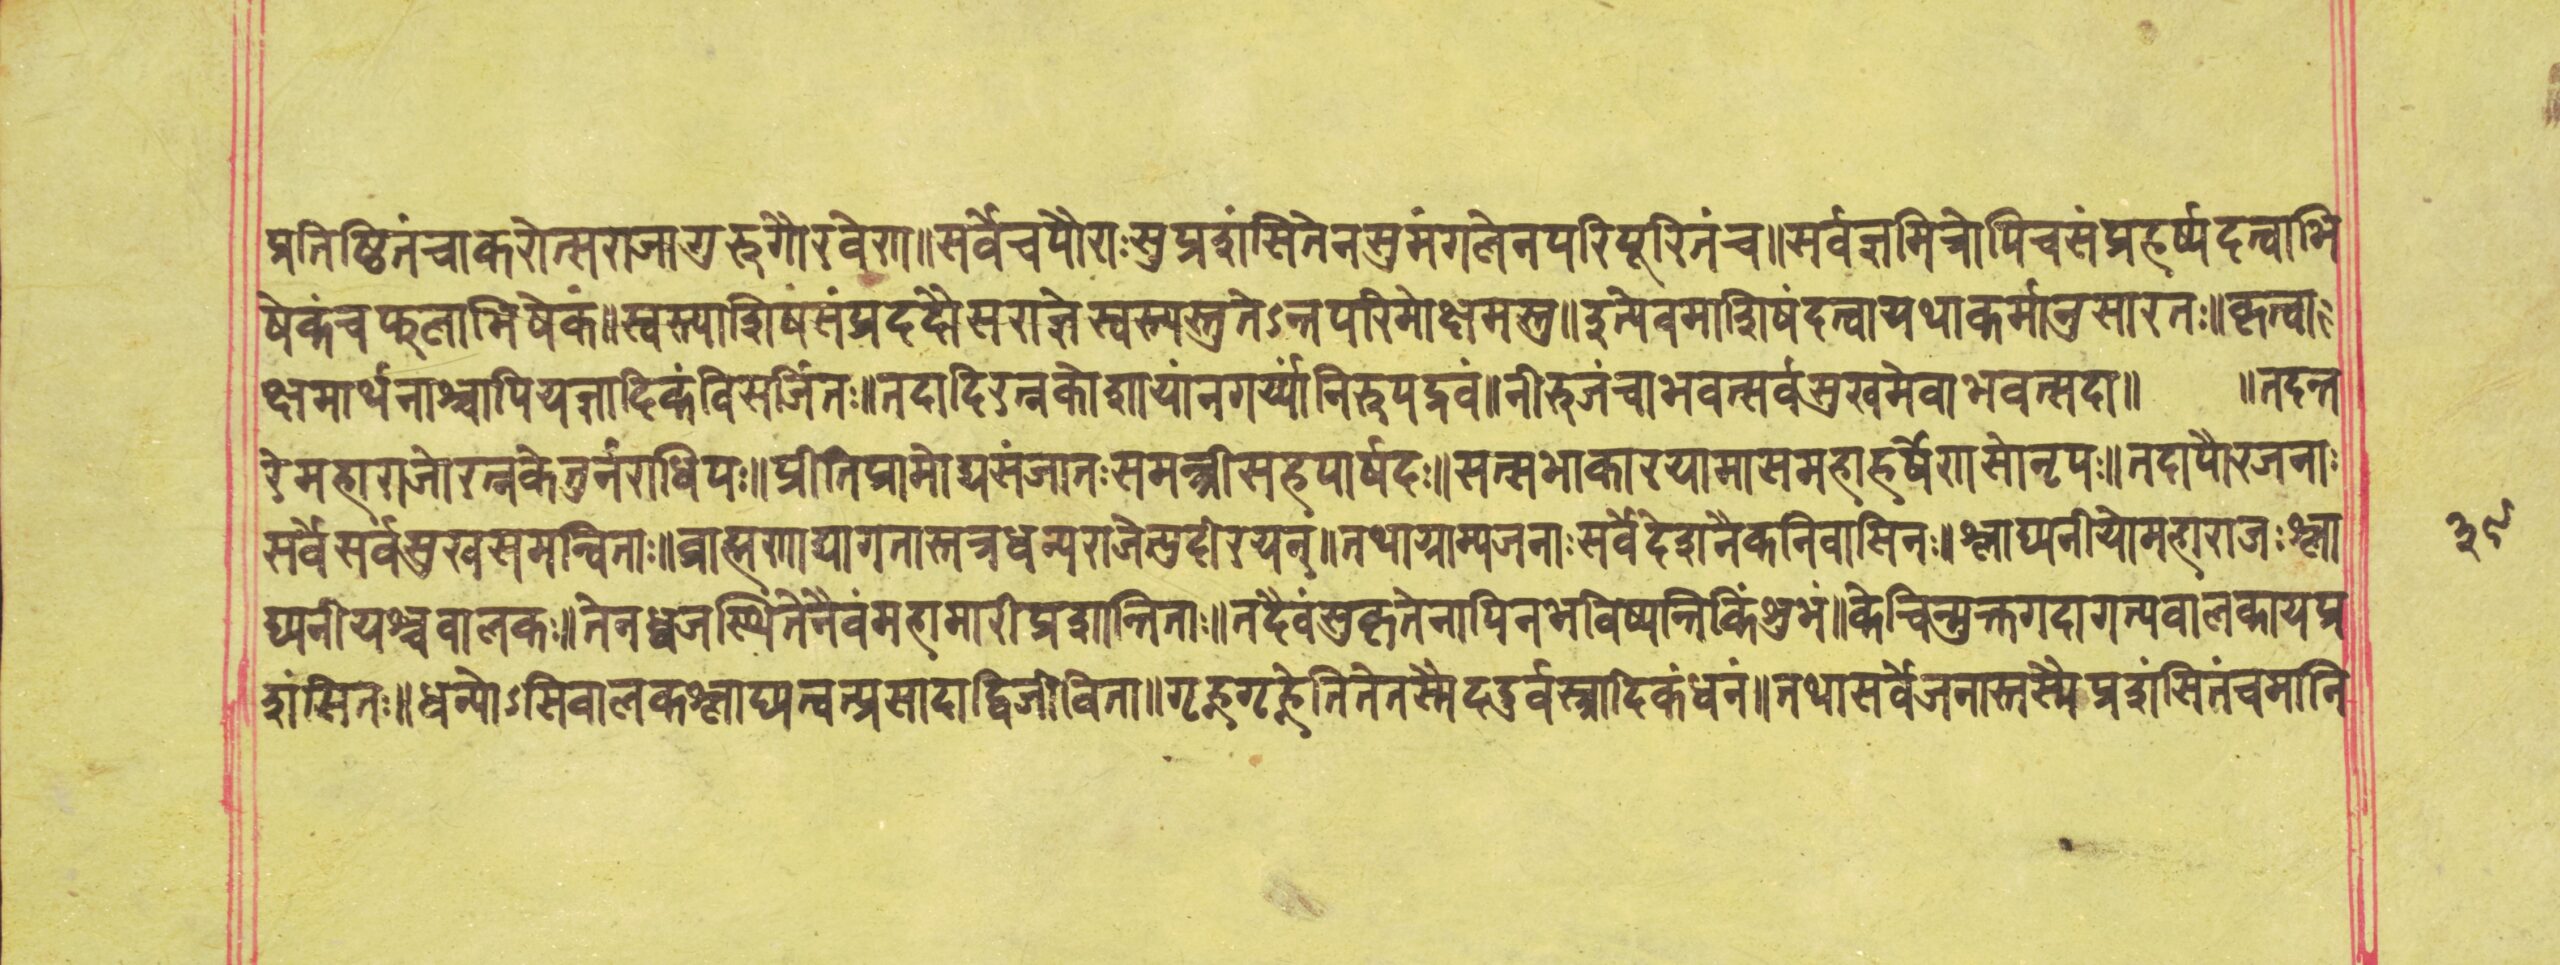 प्रतिष्ठितंचाकरोत्सराजागुरुगौरवेण॥सर्वेचपौराःसुप्रशंसितेनसुमंगलेनपरिपूरितंच॥सर्वज्ञमित्रोपिचसंप्रहर्ष्यदत्वाभि
षेकंचफलाभिषेकं॥स्वस्त्याशिषंसंप्रददौसराज्ञेस्वस्त्यस्तुतेऽन्तपरिमोक्षमस्तु॥इत्येवमाशिषंदत्वायथाकर्मानुसारतः॥कृत्वा
क्षमार्थनाश्चापियज्ञादिकंविसर्जितः॥तदादिरत्नकोशायांनगर्य्यांनिरुपद्रवं॥नीरुजंचाभवत्सर्वसुखमेवाभवत्सदा॥ ॥तदन्त
रेमहाराजोरत्नकेतुर्नराधिपः॥प्रीतिप्रामोद्यसंजातःसमन्त्रीसहपार्षदः॥सत्सभाकारयामासमहाहर्षेणसोनृपः॥तदापौरजनाः
सर्वेसर्वसुखसमन्विताः॥ब्राह्मणाद्यागतास्तत्रधन्यराजेत्युदीरयन्॥तथाग्राम्यजनाःसर्वेदेशनैकनिवासिनः॥श्लाघ्यनीयोमहाराजःश्ला
घ्यनीयश्चवालकः॥तेनध्वजस्थितेनैवंमहामारीप्रशान्तिताः॥तदैवंसुकृतेनापिनभविष्यन्तिकिंशुभं॥केचिन्मुक्तगदागत्यवालकायप्र
शंसितः॥धन्योऽसिवालकश्लाघ्यत्वत्प्रसादाद्विजीविता॥गृह्णगृह्णेतितेतस्मैददुर्वस्त्रादिकंधनं॥तथासर्वेजनास्तस्यैप्रशंसितंचमानि
३९